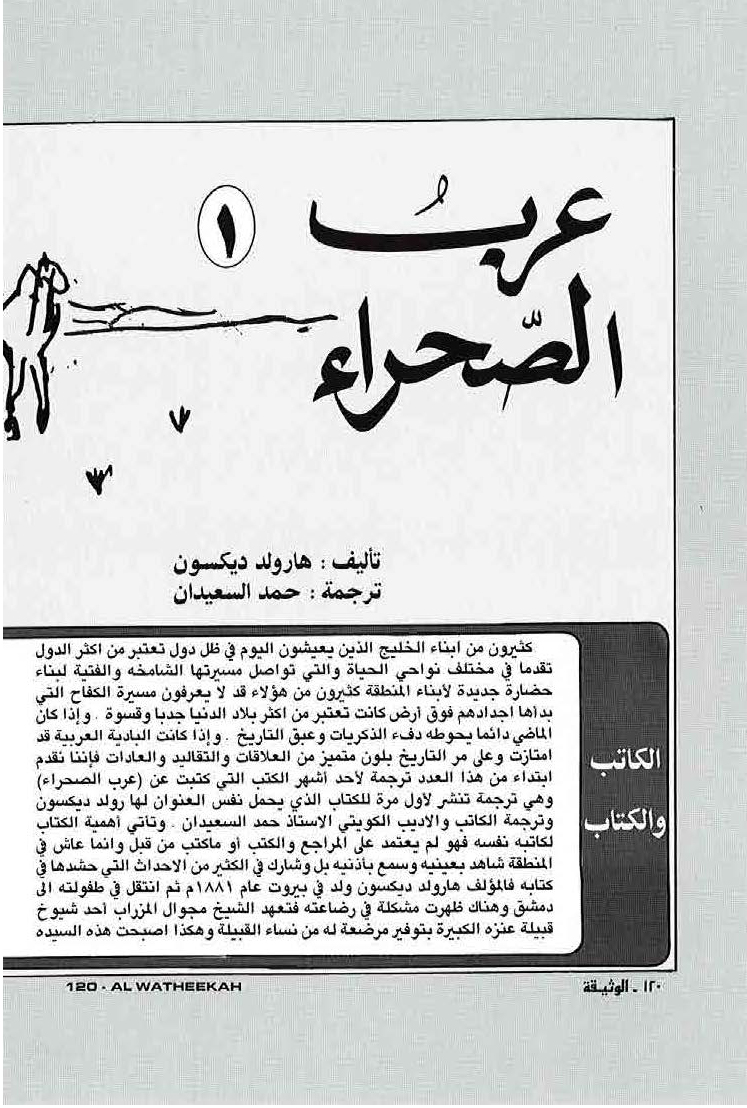 عربُ
الصّحراء
١
تأليف : هارولد ديكسون
ترجمة : حمد السعيدان
الكاتب
والكتاب
كثيرون من ابناء الخليج الذين يعيشون اليوم في ظل دول تعتبر من اكثر الدول
تقدما في مختلف نواحي الحياة والتي تواصل مسيرتها الشامخه والفتية لبناء
حضارة جديدة لأبناء المنطقة كثيرون من هؤلاء قد لا يعرفون مسيرة الكفاح التي
بدأها اجدادهم فوق أرض كانت تعتبر من اكثر بلاد الدنيا جدبا وقسوة . وإذا كان
الماضي دائما يحوطه دفء الذكريات وعبق التاريخ . وإذا كانت البادية العربية قد
امتازت وعلى مر التاريخ بلون متميز من العلاقات والتقاليد والعادات فإننا نقدم
ابتداء من هذا العدد ترجمة لأحد أشهر الكتب التي كتبت عن (عرب الصحراء)
وهي ترجمة تنشر لأول مرة للكتاب الذي يحمل نفس العنوان لها رولد ديكسون
وترجمة الكاتب والاديب الكويتي الاستاذ حمد السعيدان . وتأتي أهمية الكتاب
لكاتبه نفسه فهو لم يعتمد على المراجع والكتب أو ماكتب من قبل وانما عاش في
المنطقة شاهد بعينيه وسمع بأذنيه بل وشارك في الكثير من الاحداث التي حشدها في
كتابه فالمؤلف هارولد ديكسون ولد في بيروت عام ١٨٨١م ثم انتقل في طفولته الى
دمشق وهناك ظهرت مشكلة في رضاعته فتعهد الشيخ مجوال المزراب أحد شيوخ
قبيلة عنزه الكبيرة بتوفير مرضعة له من نساء القبيلة وهكذا اصبحت هذه السيده
١٢٠ - الوثيقة
120 - AL WATHEEKAH